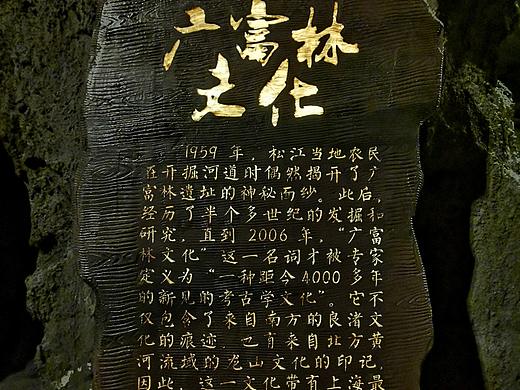 广富林
文化
1959 年，松江当地农民
在开掘河道时偶然揭开了广
富林遗址的神秘面纱。此后，
经历了半个多世纪的发掘和
研究，直到 2006 年，“广富
林文化”这一名词才被专家
定义为“一种距今4000多年
的新见的考古学文化”。它不
仅包含了来自南方的良渚文
化的痕迹，也有来自北方黄
河流域的龙山文化的印记。
因此，这一文化带有上海最